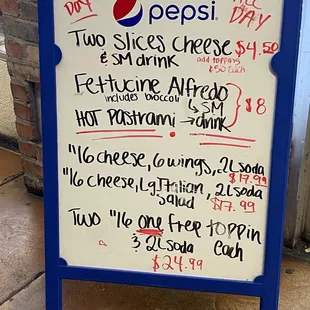 ALL
DAY
pepsi
DAY
Two Slices Cheese $4.50
& SM drink add toppins
$.50 each
Fettucine Alfredo
includes broccoli
↳ SM $8
HOT Pastrami → drink
"16 cheese, 6 wings, 2L soda
$17.99
"16 cheese, Lg Italian, 2L soda
Salad $17.99
Two "16 one free toppin
& 2L soda each
$24.99